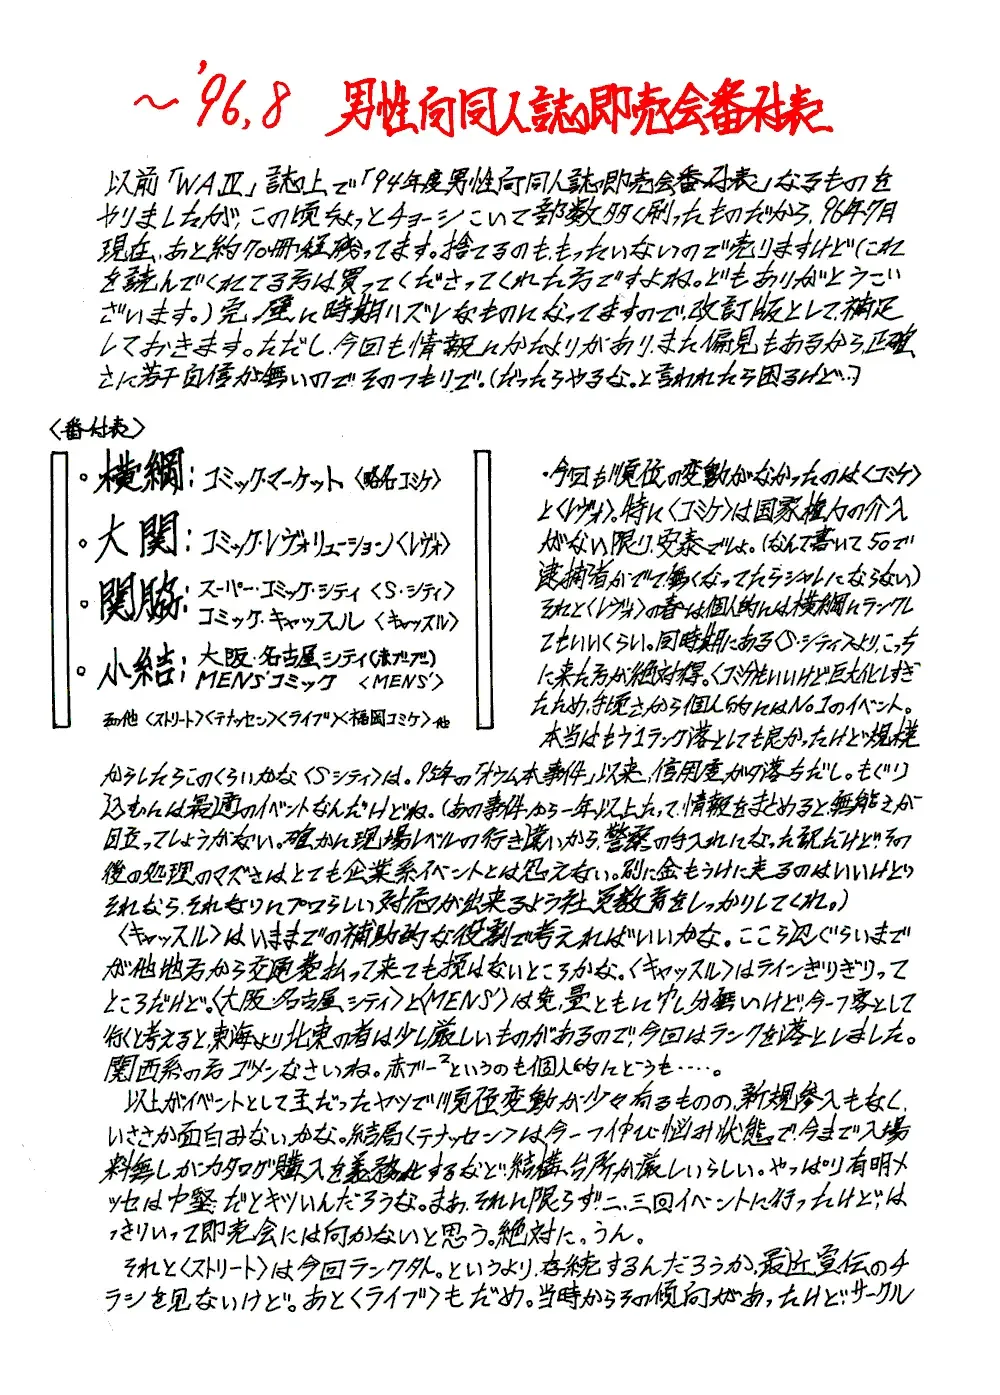 ～'96,8 男性向同人誌即売会番付表
以前「WAⅣ」誌上で「94年度男性向同人誌即売会番付表」なるものを
やりましたが、この頃ちょっとチョーシこいて部数多く刷ったものだから、96年7月
現在、あと約70冊程残ってます。捨てるのももったいないので売りますけど（これ
を読んでくれてる方は買ってくださってくれた方ですよね。どもありがとうござ
ざいます。）完璧に時期ハズレなものになってますので、改訂版として補足
しておきます。ただし、今回も情報にかたよりがあり、また偏見もあるから、正確
さに若干自信が無いので、そのつもりで。（だったらやるな。と言われたら困るけど…）
〈番付表〉
・横綱：コミック・マーケット〈略名コミケ〉
。大関：コミック・レヴォリューション〈レヴォ〉
・関脇：スーパー・コミック・シティ〈S・シティ〉
コミック・キャッスル〈キャッスル〉
・小結：大阪・名古屋シティ(赤ブーブー)
MENS'コミック〈MENS'〉
その他〈ストリート〉〈テナッセン〉〈ライブ〉〈福岡コミケ〉他
・今回も順位の変動がなかったのは〈コミケ〉
と〈レヴォ〉。特に〈コミケ〉は国家権力の介入
がない限り、安泰でしょ。（なんて書いて50で
逮捕者がでて無くなってたらシャレにならない）
それと〈レヴォ〉の春は個人的には横綱にランクし
てもいいくらい。同時期にある〈S・シティ〉より、こっち
に来た方が絶対得。〈コミケ〉もいいけど巨大化しすぎ
たため、手頃さから個人的にはNo.1のイベント。
本当はもう1ランク落としても良かったけど規模
からしたらこのくらいかな〈Sシティ〉は。95年の「オウム本事件」以来、信用度がた落ちだし。もぐり
込むには最適のイベントなんだけどね。（あの事件から一年以上たって、情報をまとめると、無能さが
目立ってしょうがない。確かに現場レベルの行き違いから、警察の手入れになった訳だけど、その
後の処理のマズさはとても企業系イベントとは思えない。別に金もうけに走るのはいいけど
それなら、それなりにプロらしい対応が出来るよう社員教育をしっかりしてくれ。）
〈キャッスル〉はいままでの補助的な役割で考えればいいかな。ここら辺ぐらいまで
が他地方から交通費払って来ても損はないところかな。〈キャッスル〉はラインぎりぎりって
ところだけど。〈大阪・名古屋シティ〉と〈MENS'〉は質、量ともに申し分無いけど、今一つ客として
行くと考えると、東海より北東の者は少し厳しいものがあるので、今回はランクを落としました。
関西系の方ゴメンなさいね。赤ブー²というのも個人的にどうも……。
以上がイベントとして主だったヤツで順位変動が少々有るものの、新規参入もなく、
いささか面白みないかな。結局〈テナッセン〉は今一つ伸び悩み状態で、今まで入場
料無しがカタログ購入を義務化するなど、結構、台所が厳しいらしい。やっぱり有明メ
ッセは中堅だとキツいんだろうな。まあ、それに限らず二、三回イベントに行ったけど、は
っきりいって即売会には向かないと思う。絶対に。うん。
それと〈ストリート〉は今回ランク外。というより、存続するんだろうか、最近、宣伝のチ
ラシを見ないけど。あと〈ライブ〉もだめ。当時からその傾向があったけど、サークル